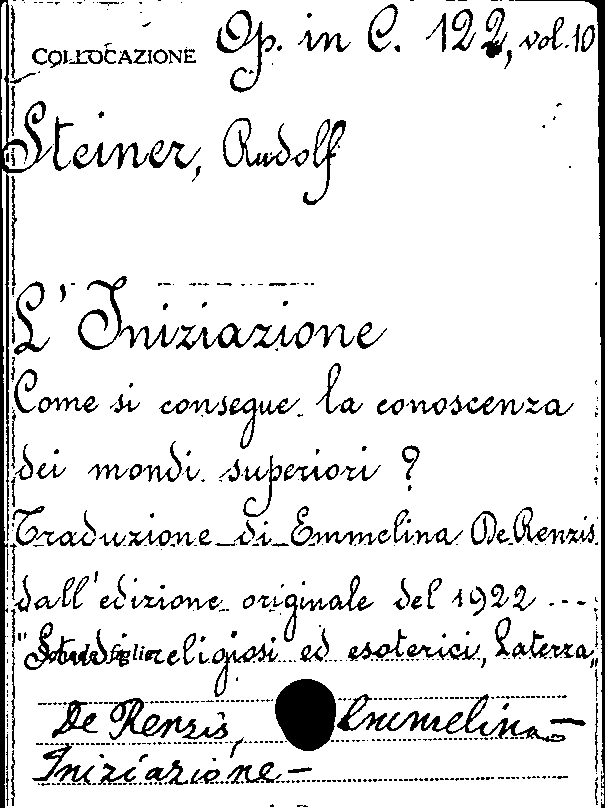 COLLOCAZIONE Op. in C. 122, vol. 10
Steiner, Rudolf
L'Iniziazione
Come si consegue la conoscenza
dei mondi superiori ?
Traduzione di Emmelina De Renzis
dall'edizione originale del 1922 ...
"Studi religiosi ed esoterici, Laterza"
De Renzis, Emmelina -
Iniziazione -